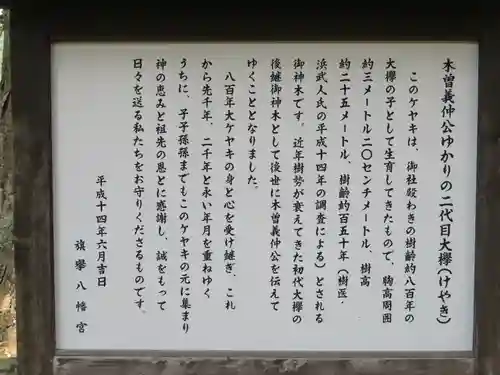 木曽義仲公ゆかりの二代目大欅(けやき)
このケヤキは、御社殿わきの樹齢約八百年の
大欅の子として生育してきたもので、胸高周囲
約三メートル二〇センチメートル、樹高
約二十五メートル、樹齢約百五十年(樹医・
浜武人氏の平成十四年の調査による)とされる
御神木です。近年樹勢が衰えてきた初代大欅の
後継御神木として後世に木曽義仲公を伝えて
ゆくこととなりました。
八百年大ケヤキの身と心を受け継ぎ、これ
から先千年、二千年と永い年月を重ねゆく
うちに、子子孫孫までもこのケヤキの元に集まり
神の恵みと祖先の恩とに感謝し、誠をもって
日々を送る私たちをお守りくださるものです。
平成十四年六月吉日
旗擧八幡宮